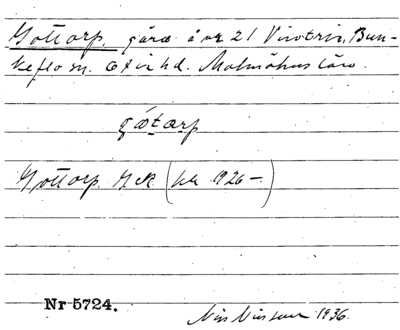 Gottorp. gård å nr 21 Vintrie, Bun-
keflo sn. Oxie hd. Malmöhus län.
gåtarp
Gottorp. GK (kk 1926 –)
Nr 5724.
Nils Nilsson 1936.